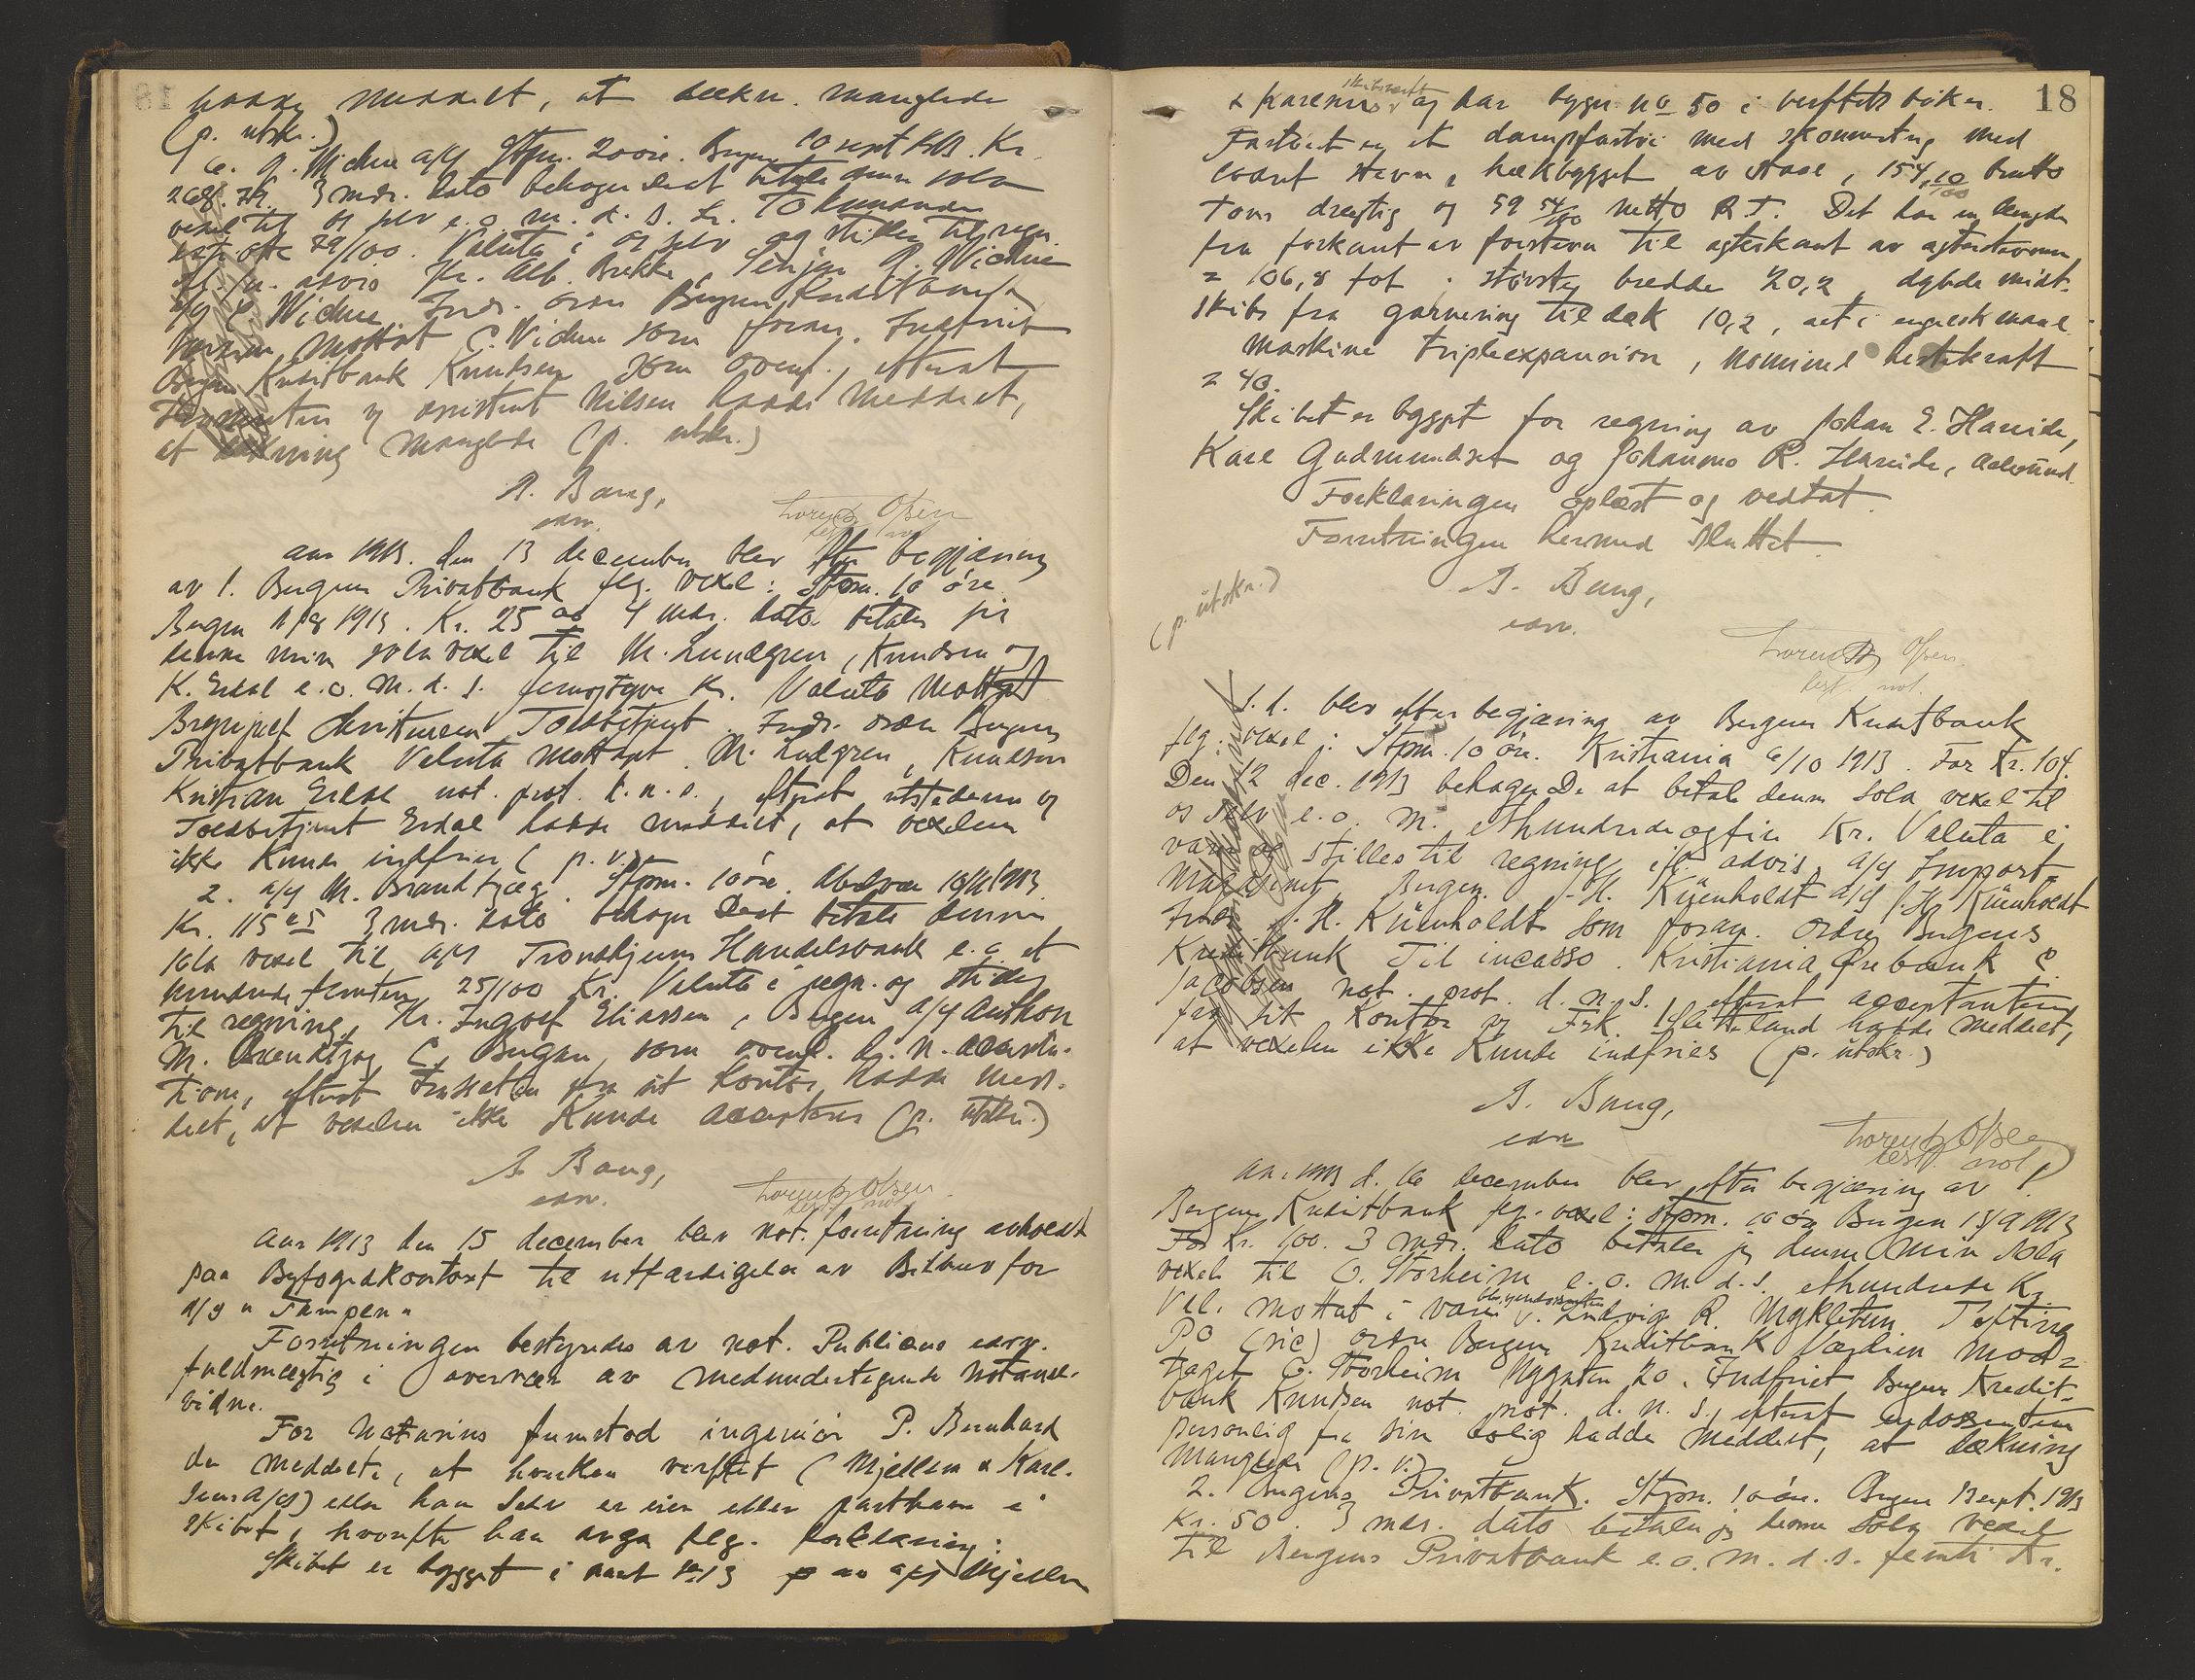 hadde meddelt, at dækn. manglede
(p. utskr.)
6. J. Wichne a/y Stpm. 20 øre. Bergen 10 sept 1913. Kr.
268.79. 3 mdr. dato behager De at betale denne sola
vexel til os selv e. o. m. d. s. Kr. To hundrede
otte 79/100. Valuta i os selv og stilles til regn.
if. advis Hr. Alb. Brekke, J. Wichne
a/y C. Wichne Indr. ordre Bergens Kreditbank
Mottat C. Wichne som foran. Indfriet
Bergens Kreditbank Knudsen som ovenf., efterat
og assistent Nilsen hadde meddelt,
at dækning manglede (p. utskr.)
A. Bang,
edsv.
Lorentz Olsen
test. not.
Aar 1913. den 13 december blev efter begjæring
av 1. Bergens Privatbank flg. vexel: Stpm. 10 øre
Bergen 11/8 1913. Kr. 25 00 4 mdr. dato betaler jeg
denne min sola vexel til M. Lundgren, Knudsen og
K. Erdal e. o. m. d. s. femogtyve Kr. Valuta Mottat
Christensen Toldbetjent. Indr. ordre Bergens
Privatbank Valuta Mottat. M. Lundgren, Knudsen
Kristian Erdal not. prot. d. n. s., efterat utstederen og
Toldbetjent Erdal hadde meddelt, at vexelen
ikke kunde indfries (p. u.)
2. a/y M. Brandtzæg. Stpm. 10 øre. 1913
Kr. 115 25 3 mdr. dato behager De at betale denne
sola vexel til a/s Trondhjems Handelsbank e. o. et
hundrede femten 25/100 Kr. Valuta i regn. og stilles
til regning, Hr. Ingolf Eliassen, Bergen a/y Anthon
M. Brandtzæg C, Bergen, som ovenf. d. n. accepta-
tion, efterat trassaten fra sit kontor hadde med-
delt, at vexelen ikke kunde accepteres (p. utskr.)
A. Bang,
edsv.
Lorentz Olsen
test. not.
Aar 1913 den 15 december blev not. forretning avholdt
paa Byfogedkontoret til utfærdigelse av Bilbrev for
d/s "Tampen"
Forretningen bestyredes av not. Publicus edsv.
fuldmægtig i overvær av medundertegnede notarial-
vidne.
For Notarius fremstod ingeniør P. Bernhard
der meddelte, at hverken verftet (Mjellem & Karl-
sens A/S) eller han selv er eier eller parthaver i
skibet, hvorefter han avga flg. forklaring:
Skibet er bygget i aaret 1913 av a/s Mjellem
18
& Karlsens skibsverft og har bygn. no 50 i verftets bøker.
Fartøiet er et dampfartøi med skonnertrig med
lodret stevn, hækbygget av staal, 154,10/100 brutto
tons drægtig og 59 54/100 netto R T. Det har en længde
fra forkant av forstevn til agterkant av agterstevnen
= 106,8 fot, største bredde 20,2, dybde midt-
skibs fra garnering til dæk 10,2, alt i engelsk maal.
Maskine triple expansion, nominel hestekraft
= 40.
Skibet er bygget for regning av Johan E. Hareide,
Karl Gudmundset og Johannes R. Hareide, Aalesund.
Forklaringen oplæst og vedtat.
Forretningen hermed sluttet.
(p. utskr.)
A. Bang,
edsv.
Lorentz Olsen.
test. not.
S. d. blev efter begjæring av Bergens Kreditbank
flg. vexel: Stpm. 10 øre. Kristiania 6/10 1913. For Kr. 104.
Den 12 dec. 1913 behager De at betale denne sola vexel til
os selv e. o. m. ethundrede og fire Kr. Valuta i
varer og stilles til regning ifl. advis, a/y Import-
Magasinet, Bergen. H. Küenholdt a/y H. Küenholdt
Indr. H. Küenholdt som foran. Ordre Bergens
Kreditbank Til incasso. Kristiania Folkebank C.
Jacobsen not. prot. d. n. s., efterat acceptanten
fra sit kontor og Frk. hadde meddelt,
at vexelen ikke kunde indfries (p. utskr.)
A. Bang,
edsv
Lorentz Olsen
test. not.
Aar 1913 d. 16 december blev efter begjæring av 1.
Bergens Kreditbank flg. vexel: Stpm. 10 øre Bergen 13/9 1913
For Kr. 100. 3 mdr. dato betaler jeg denne min sola
vexel til O. Storheim e. o. m. d. s. ethundrede Kr.
Val. mottat i varer Ludvig R. Mykletun Tefting
PO (sic) ordre Bergens Kreditbank Værdien mod-
taget O. Storheim Nygaten 20. Indfriet Bergens Kredit-
bank Knudsen not. prot. d. n. s., efterat endossenten
personlig fra sin bolig hadde meddelt, at dækning
manglede (p. u.)
2. Bergens Privatbank. Stpm. 10 øre. Bergen 13 sept. 1913
Kr. 50. 3 mdr. dato betaler jeg denne sola vexel
til Bergens Privatbank e. o. m. d. s. femti Kr.